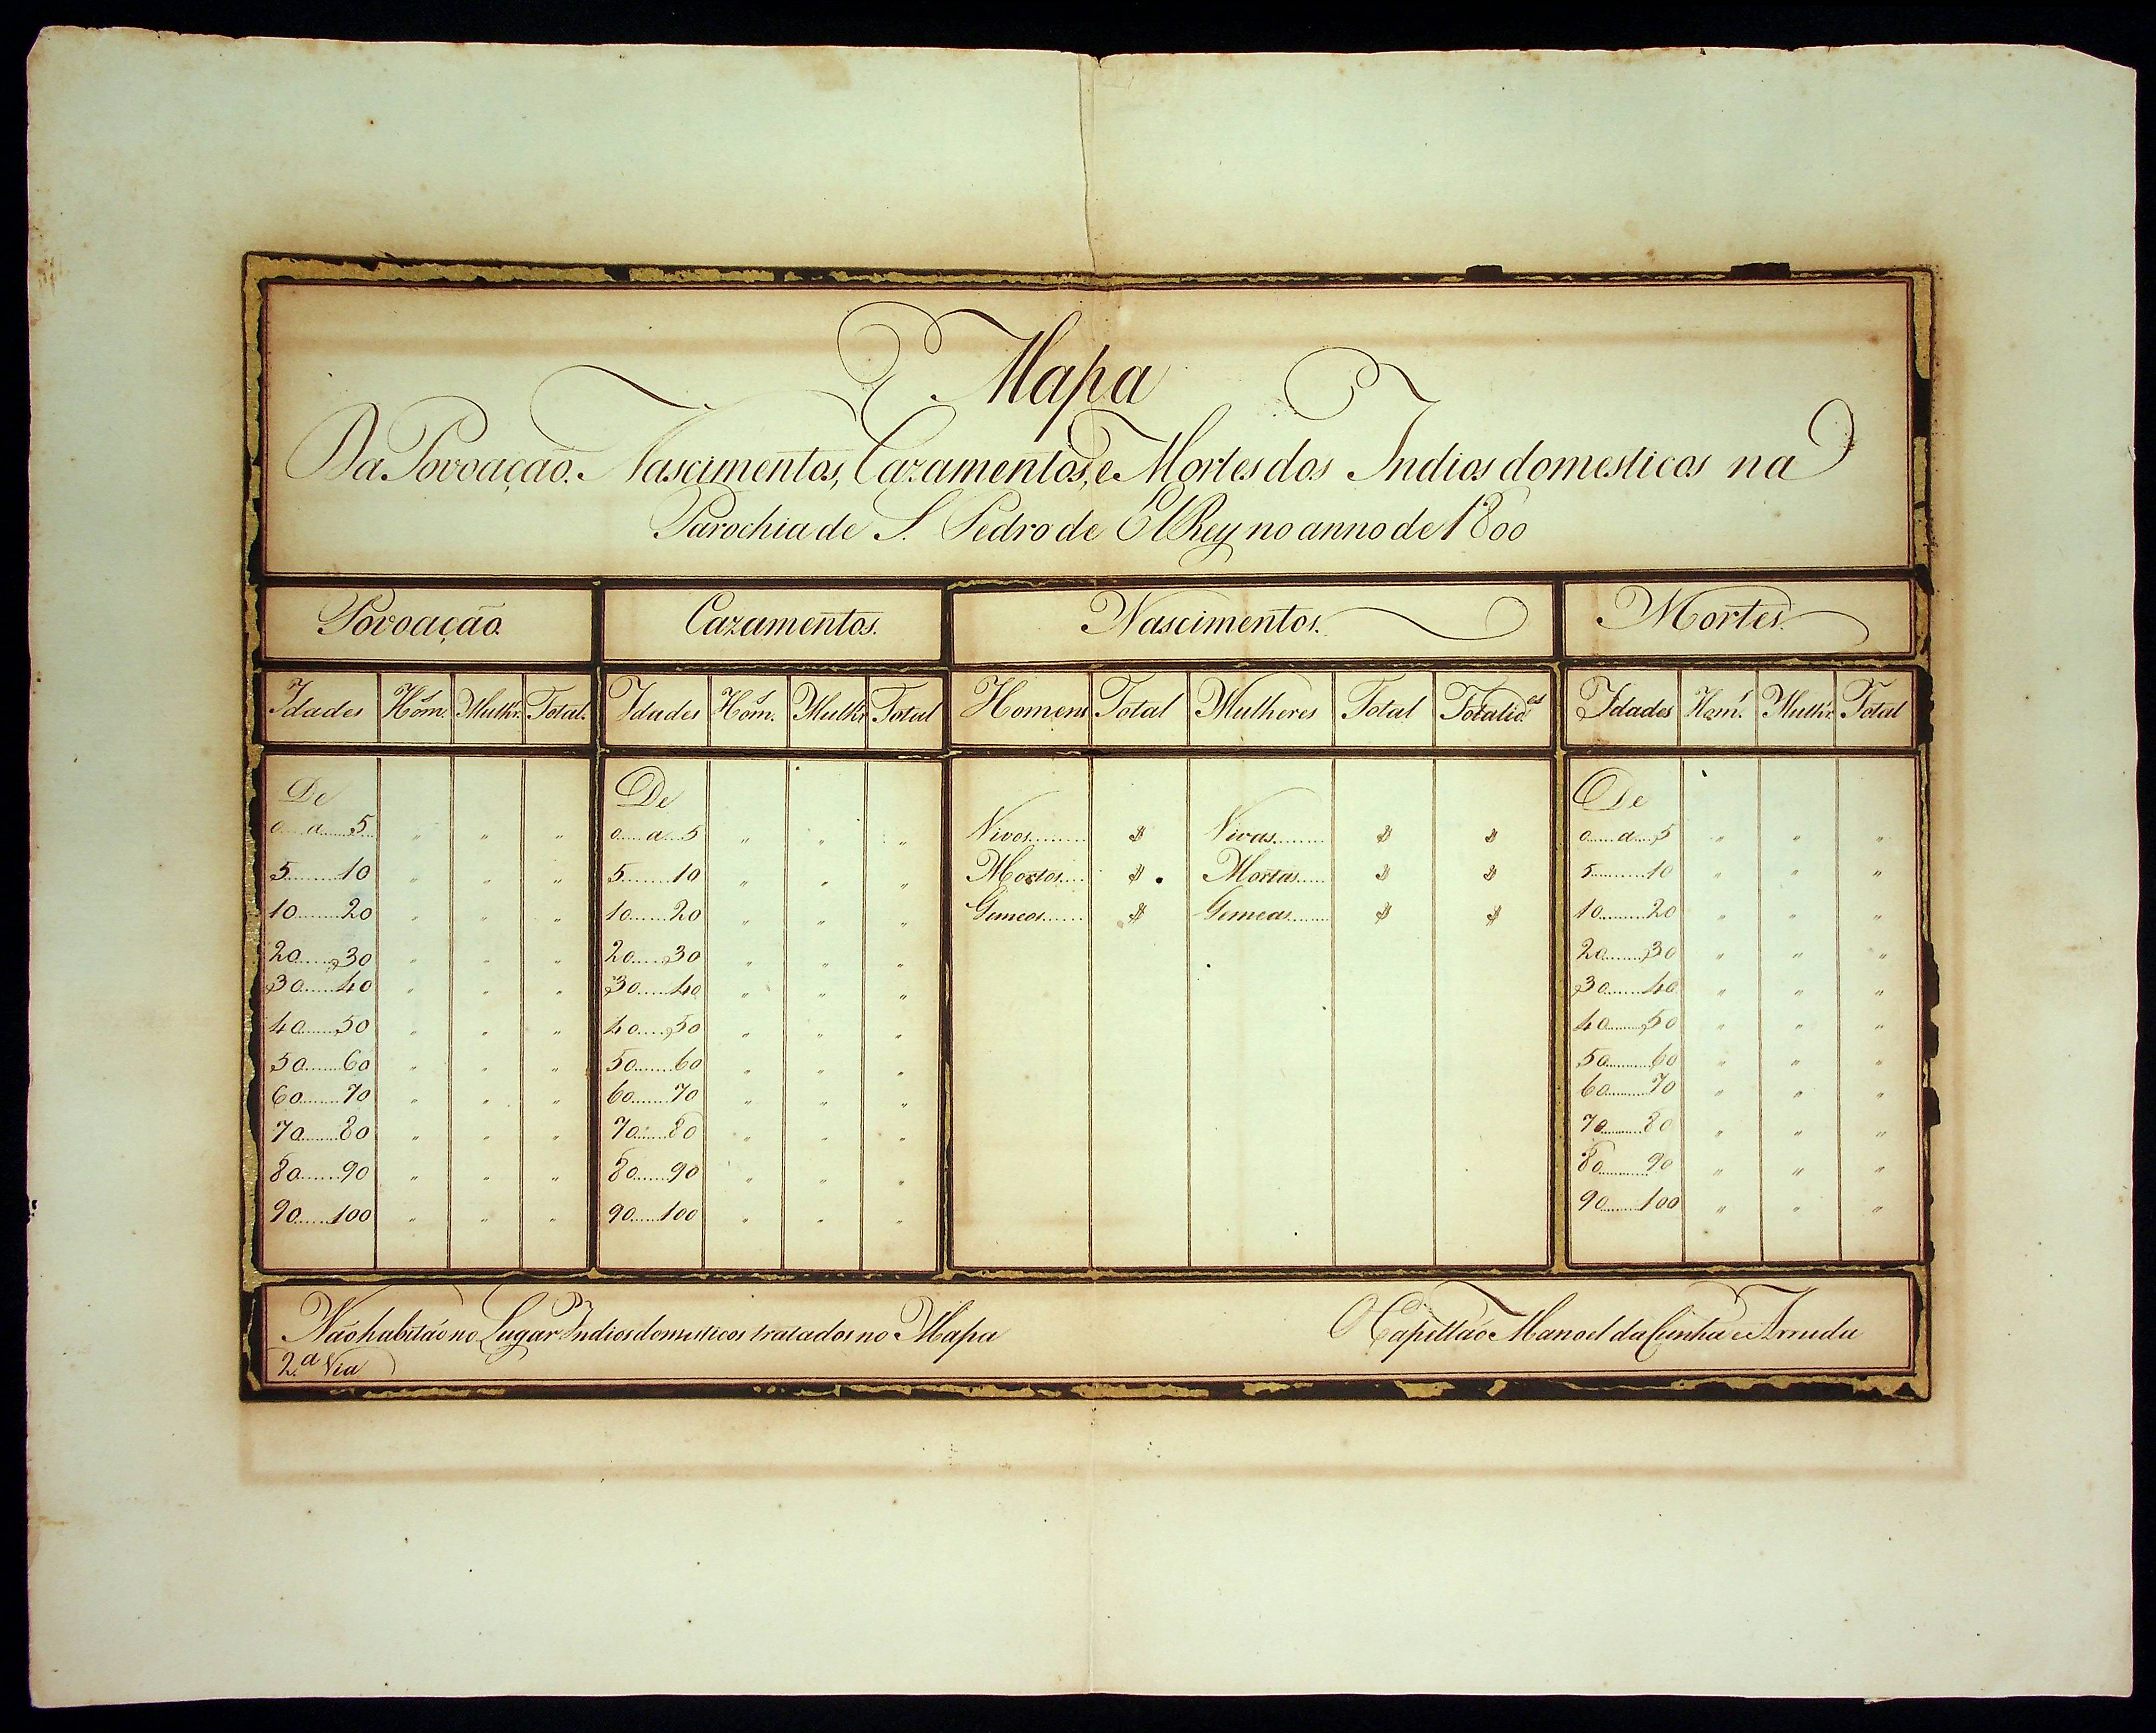 Mapa
Da Povoação. Nascimentos, Cazamentos, e Mortes dos Indios domesticos na
Parochia de S. Pedro de ElRey no anno de 1800
Povoação. Cazamentos. Nascimentos. Mortes.
Idades Hom.s Mulhr. Total. Idades Hom.s Mulhr. Total Homens Total Mulheres Total Totalid.es Idades Hom.s Mulhr. Total
De De De
0 a 5 " " " 0 a 5 " " " Vivos $ Vivas $ $ 0 a 5 " " "
5 10 " " " 5 10 " " " Mortos $ Mortas $ $ 5 10 " " "
10 20 " " " 10 20 " " " Gemeos $ Gemeas $ $ 10 20 " " "
20 30 " " " 20 30 " " " 20 30 " " "
30 40 " " " 30 40 " " " 30 40 " " "
40 50 " " " 40 50 " " " 40 50 " " "
50 60 " " " 50 60 " " " 50 60 " " "
60 70 " " " 60 70 " " " 60 70 " " "
70 80 " " " 70 80 " " " 70 80 " " "
80 90 " " " 80 90 " " " 80 90 " " "
90 100 " " " 90 100 " " " 90 100 " " "
Não habitão no Lugar Indios domesticos tratados no Mapa O Capellão Manoel da Cunha e Arruda
2.ª Via